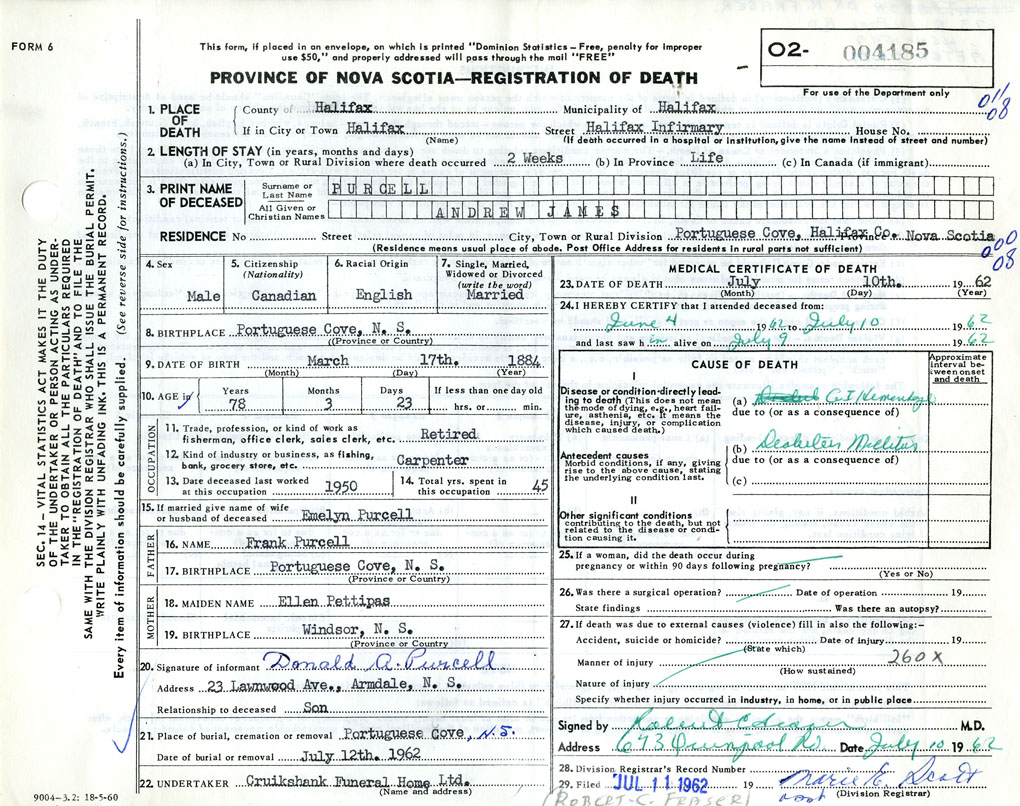 FORM 6
This form, if placed in an envelope, on which is printed "Dominion Statistics – Free, penalty for improper
use $50," and properly addressed will pass through the mail "FREE"
PROVINCE OF NOVA SCOTIA—REGISTRATION OF DEATH
O2- 004185
For use of the Department only
011
08
1. PLACE OF DEATH
County of Halifax Municipality of Halifax
If in City or Town Halifax Street Halifax Infirmary House No.
(Name) (If death occurred in a hospital or institution, give the name instead of street and number)
2. LENGTH OF STAY (in years, months and days)
(a) In City, Town or Rural Division where death occurred 2 Weeks (b) In Province Life (c) In Canada (if immigrant)
3. PRINT NAME OF DECEASED
Surname or Last Name PURCELL
All Given or Christian Names ANDREW JAMES
RESIDENCE No Street City, Town or Rural Division Portuguese Cove, Halifax Co. Province Nova Scotia
(Residence means usual place of abode. Post Office Address for residents in rural parts not sufficient)
000
08
4. Sex
Male
5. Citizenship
(Nationality)
Canadian
6. Racial Origin
English
7. Single, Married,
Widowed or Divorced
(write the word)
Married
8. BIRTHPLACE Portuguese Cove, N. S.
((Province or Country)
9. DATE OF BIRTH March 17th. 1884
(Month) (Day) (Year)
10. AGE in
Years 78
Months 3
Days 23
If less than one day old
hrs. or min.
OCCUPATION
11. Trade, profession, or kind of work as
fisherman, office clerk, sales clerk, etc. Retired
12. Kind of industry or business, as fishing,
bank, grocery store, etc. Carpenter
13. Date deceased last worked
at this occupation 1950
14. Total yrs. spent in
this occupation 45
15. If married give name of wife
or husband of deceased Emelyn Purcell
FATHER
16. NAME Frank Purcell
17. BIRTHPLACE Portuguese Cove, N. S.
(Province or Country)
MOTHER
18. MAIDEN NAME Ellen Pettipas
19. BIRTHPLACE Windsor, N. S.
(Province or Country
20. Signature of informant Donald A. Purcell
Address 23 Lawnwood Ave., Armdale, N. S.
Relationship to deceased Son
21. Place of burial, cremation or removal Portuguese Cove, N.S.
Date of burial or removal July 12th. 1962
22. UNDERTAKER Cruikshank Funeral Home Ltd.
(Name and address)
MEDICAL CERTIFICATE OF DEATH
23. DATE OF DEATH July 10th. 1962
(Month) (Day) (Year)
24. I HEREBY CERTIFY that I attended deceased from:
June 4 1962 to July 10 1962
and last saw him alive on July 9 1962
CAUSE OF DEATH
Approximate
interval be-
tween onset
and death
I
Disease or condition directly lead-
ing to death (This does not mean
the mode of dying, e.g., heart fail-
ure, asthenia, etc. It means the
disease, injury, or complication
which caused death.)
(a)
due to (or as a consequence of)
Antecedent causes
Morbid conditions, if any, giving
rise to the above cause, stating
the underlying condition last.
(b)
due to (or as a consequence of)
(c)
II
Other significant conditions
contributing to the death, but not
related to the disease or condi-
tion causing it.
25. If a woman, did the death occur during
pregnancy or within 90 days following pregnancy?
(Yes or No)
26. Was there a surgical operation? Date of operation 19
State findings Was there an autopsy?
27. If death was due to external causes (violence) fill in also the following:–
Accident, suicide or homicide? Date of injury 19
(State which)
260X
Manner of injury
(How sustained)
Nature of injury
Specify whether injury occurred in industry, in home, or in public place
Signed by M.D.
Address 673 Date July 10 1962
28. Division Registrar's Record Number
29. Filed JUL 11 1962 19 Marie E. Scott
(Division Registrar)
(ROBERT C. FRASER)
SEC. 14 – VITAL STATISTICS ACT MAKES IT THE DUTY
OF THE UNDERTAKER OR PERSON ACTING AS UNDER-
TAKER TO OBTAIN ALL THE PARTICULARS REQUIRED
IN THE "REGISTRATION OF DEATH" AND TO FILE THE
SAME WITH THE DIVISION REGISTRAR WHO SHALL ISSUE THE BURIAL PERMIT.
WRITE PLAINLY WITH UNFADING INK. THIS IS A PERMANENT RECORD.
Every item of information should be carefully supplied. (See reverse side for instructions.)
9004–3.2: 18-5-60